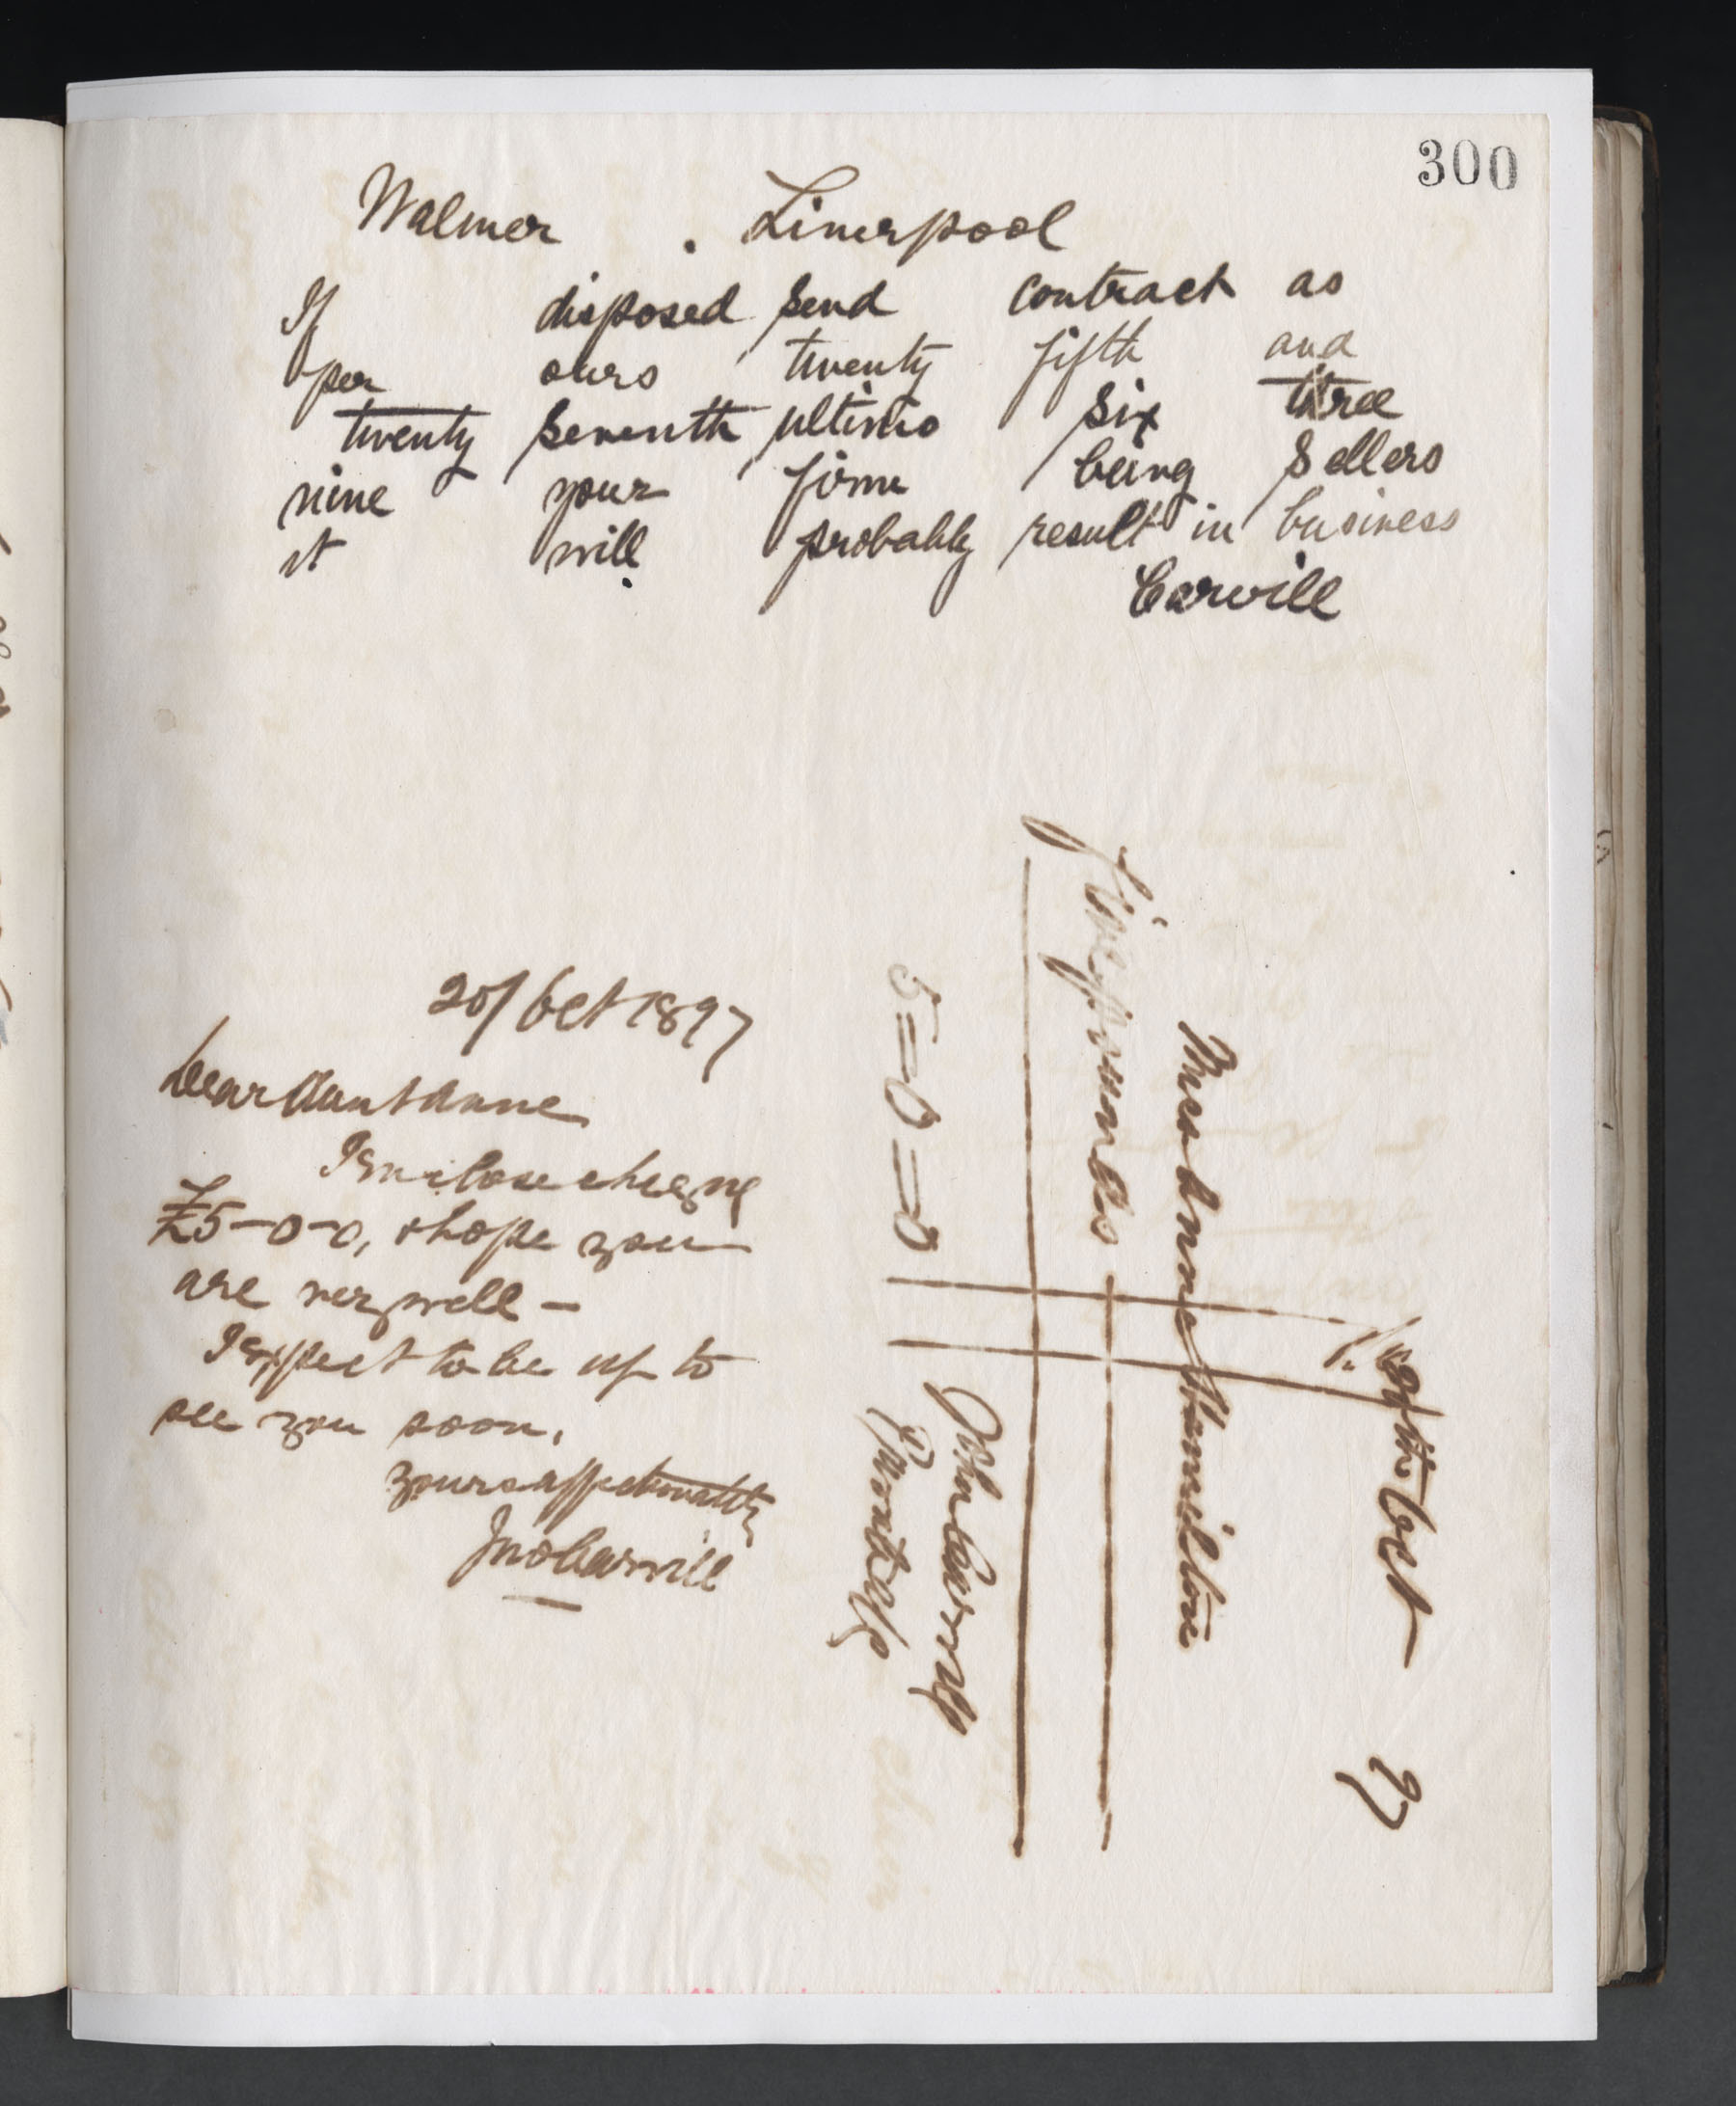 300
Walmer . Liverpool
If disposed send contract as
per ours twenty fifth and
twenty seventh ultimo six three
nine your firm being sellers
it will probably result in business
Carvill
20/Oct 1897
Dear Aunt Anne
I enclose cheque
£5-0-0, & hope you
are very well -
I expect to be up to
see you soon,
yours affectionately
Jno Carvill
20th Oct 97
Miss Anne Hamilton
five pounds
John Carvill
Private a/c
5=0=0